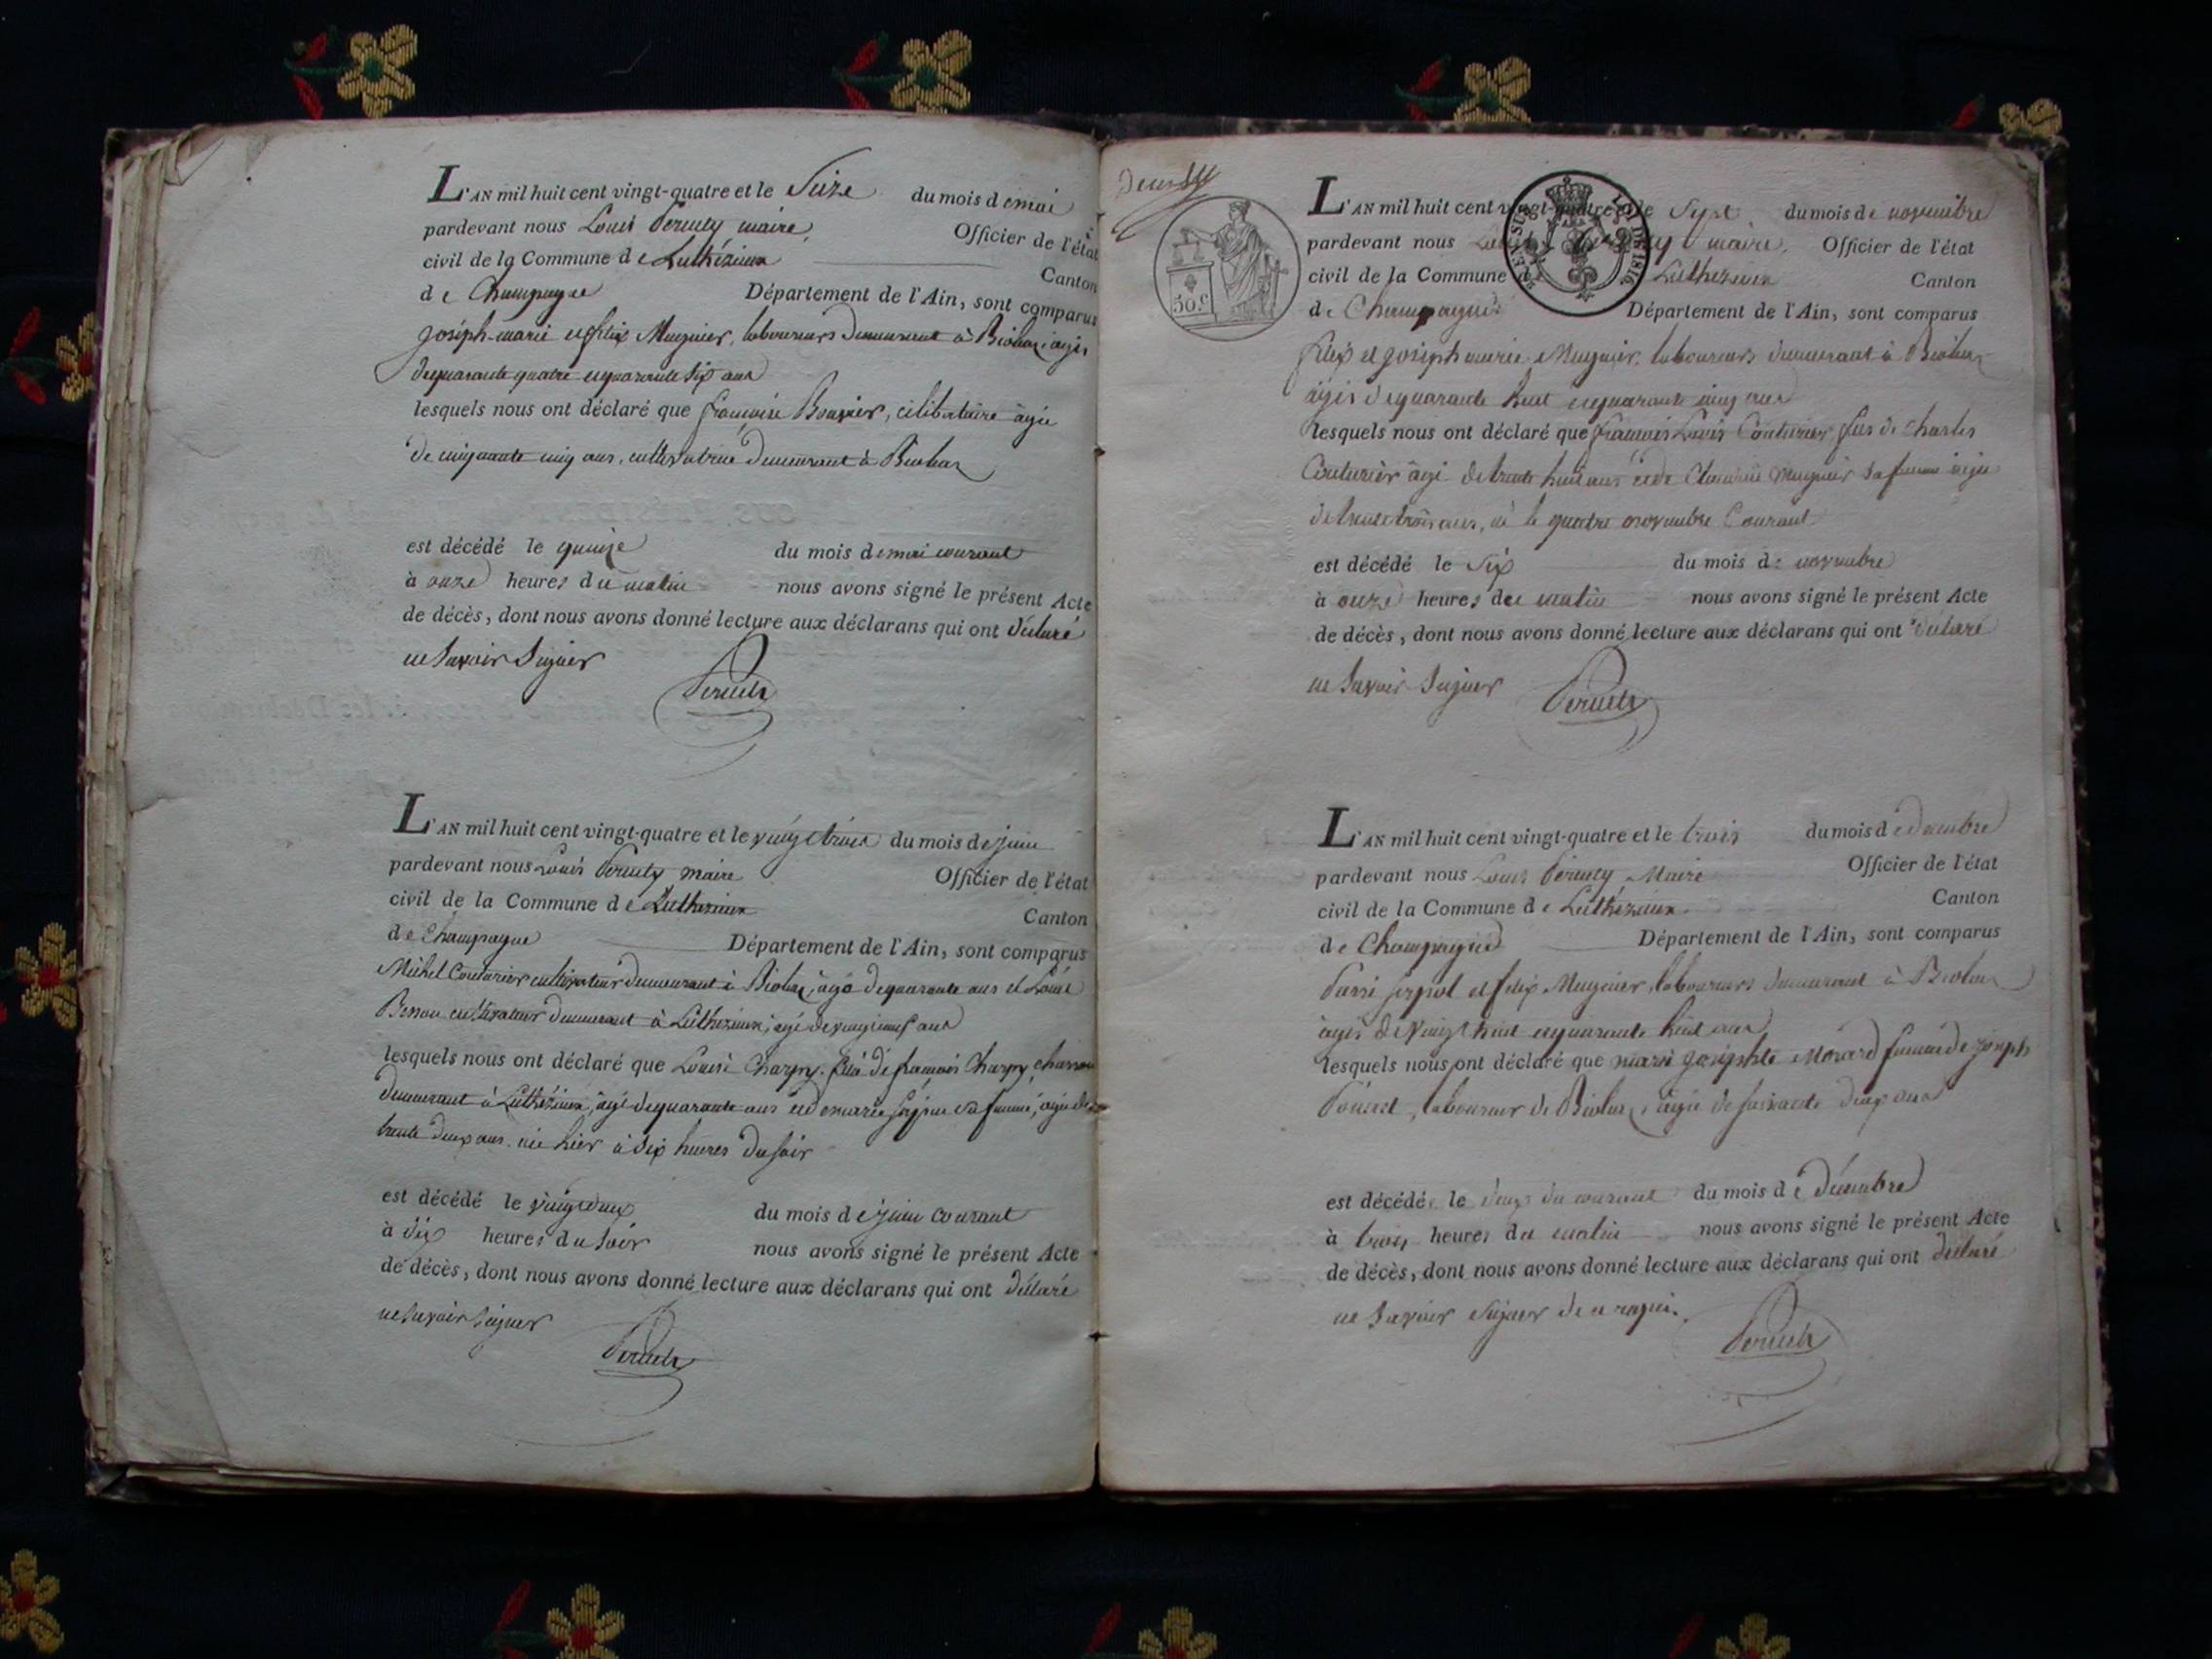 L'AN mil huit cent vingt-quatre et le Seize du mois de mai
pardevant nous Louis Peruety maire, Officier de l'état
civil de la Commune de Luthézieux Canton
de Champagne Département de l'Ain, sont comparus
joseph-marie et felix Mugnier, laboureurs demeurant à Biolaz, agés
de quarante quatre et quarante six ans
lesquels nous ont déclaré que françoise Bouvier, célibataire âgée
de cinquante cinq ans, cultivatrice demeurant à Biolaz
est décédé le quinze du mois de mai courant
à onze heures du matin nous avons signé le présent Acte
de décès, dont nous avons donné lecture aux déclarans qui ont déclaré
ne Savoir Signer
L'AN mil huit cent vingt-quatre et le vingt trois du mois de juin
pardevant nous Louis Peruety maire Officier de l'état
civil de la Commune de Luthezieux Canton
de Champagne Département de l'Ain, sont comparus
Michel Couturier cultivateur demeurant à Biolaz, âgé de quarante ans et Louis
Besson cultivateur demeurant à Luthezieux, agé de vingt neuf ans
lesquels nous ont déclaré que Louise Charpy, fille de françois Charpy, charron
demeurant à Luthézieux, âgé de quarante ans et de marie sa femme, agée de
trente deux ans. née hier à Six heures du soir
est décédé le vingt deux du mois de juin courant
à dix heures du Soir nous avons signé le présent Acte
de décès, dont nous avons donné lecture aux déclarans qui ont déclaré
ne Savoir Signer
50 c.
L'AN mil huit cent vingt-quatre et le Sept du mois de novembre
pardevant nous Louis Peruety maire, Officier de l'état
civil de la Commune de Luthezieux Canton
de Champagne Département de l'Ain, sont comparus
felix et joseph marie Mugnier, laboureurs demeurant à Biolaz
agés de quarante huit et quarante cinq ans
lesquels nous ont déclaré que françois Louis Couturier, fils de Charles
Couturier âgé de trente huit ans et de Mugnier sa femme agée
de trente trois ans, né le quatre novembre Courant
est décédé le Six du mois de novembre
à onze heures du matin nous avons signé le présent Acte
de décès, dont nous avons donné lecture aux déclarans qui ont déclaré
ne Savoir Signer
L'AN mil huit cent vingt-quatre et le trois du mois de décembre
pardevant nous Louis Peruety Maire Officier de l'état
civil de la Commune de Luthézieux Canton
de Champagne Département de l'Ain, sont comparus
et felix Mugnier, laboureurs demeurant à Biolaz
agés de vingt huit et quarante huit ans
lesquels nous ont déclaré que marie josephte Morard femme de joseph
laboureur de Biolaz, agée de soixante deux ans
est décédé le deux du courant du mois de Décembre
à trois heures du matin nous avons signé le présent Acte
de décès, dont nous avons donné lecture aux déclarans qui ont déclaré
ne Savoir Signer de ce requis.